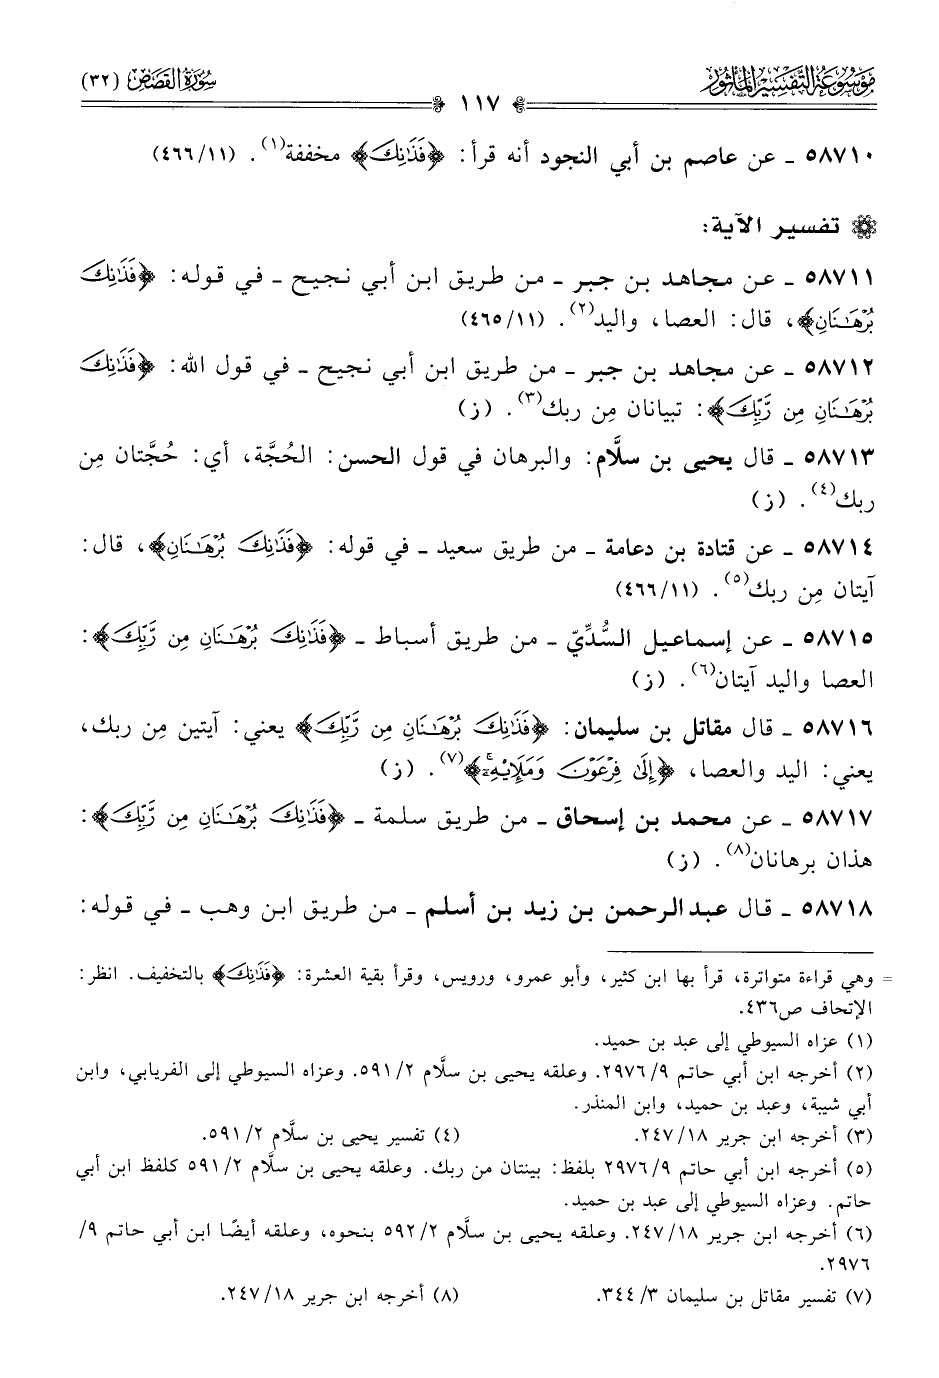 مَوْسُوعَة التَّفْسِير المَأْثُور
سُورَة القَصَص (٣٢)
١١٧
٥٨٧١٠ ـ عن عاصم بن أبي النجود أنه قرأ: ﴿فَذَٰنِكَ﴾ مخففة(١). (٤٦٦/١١)
تفسير الآية:
٥٨٧١١ ـ عن مجاهد بن جبر ـ من طريق ابن أبي نجيح ـ في قوله: ﴿فَذَٰنِكَ
بُرْهَـٰنَانِ﴾، قال: العصا، واليد(٢). (٤٦٥/١١)
٥٨٧١٢ ـ عن مجاهد بن جبر ـ من طريق ابن أبي نجيح ـ في قول الله: ﴿فَذَٰنِكَ
بُرْهَـٰنَانِ مِن رَّبِّكَ﴾: تبيانان مِن ربك(٣). (ز)
٥٨٧١٣ ـ قال يحيى بن سلَّام: والبرهان في قول الحسن: الحُجَّة، أي: حُجَّتان مِن
ربك(٤). (ز)
٥٨٧١٤ ـ عن قتادة بن دعامة ـ من طريق سعيد ـ في قوله: ﴿فَذَٰنِكَ بُرْهَـٰنَانِ﴾، قال:
آيتان مِن ربك(٥). (٤٦٦/١١)
٥٨٧١٥ ـ عن إسماعيل السُّدِّيّ ـ من طريق أسباط ـ ﴿فَذَٰنِكَ بُرْهَـٰنَانِ مِن رَّبِّكَ﴾:
العصا واليد آيتان(٦). (ز)
٥٨٧١٦ ـ قال مقاتل بن سليمان: ﴿فَذَٰنِكَ بُرْهَـٰنَانِ مِن رَّبِّكَ﴾ يعني: آيتين مِن ربك،
يعني: اليد والعصا، ﴿إِلَىٰ فِرْعَوْنَ وَمَلَإِي۟هِۦٓ﴾(٧). (ز)
٥٨٧١٧ ـ عن محمد بن إسحاق ـ من طريق سلمة ـ ﴿فَذَٰنِكَ بُرْهَـٰنَانِ مِن رَّبِّكَ﴾:
هذان برهانان(٨). (ز)
٥٨٧١٨ ـ قال عبد الرحمن بن زيد بن أسلم ـ من طريق ابن وهب ـ في قوله:
= وهي قراءة متواترة، قرأ بها ابن كثير، وأبو عمرو، ورويس، وقرأ بقية العشرة: ﴿فَذَٰنِكَ﴾ بالتخفيف. انظر:
الإتحاف ص٤٣٦.
(١) عزاه السيوطي إلى عبد بن حميد.
(٢) أخرجه ابن أبي حاتم ٩/ ٢٩٧٦. وعلقه يحيى بن سلَّام ٢/ ٥٩١. وعزاه السيوطي إلى الفريابي، وابن
أبي شيبة، وعبد بن حميد، وابن المنذر.
(٣) أخرجه ابن جرير ١٨/ ٢٤٧. (٤) تفسير يحيى بن سلَّام ٢/ ٥٩١.
(٥) أخرجه ابن أبي حاتم ٩/ ٢٩٧٦ بلفظ: بينتان من ربك. وعلقه يحيى بن سلَّام ٢/ ٥٩١ كلفظ ابن أبي
حاتم. وعزاه السيوطي إلى عبد بن حميد.
(٦) أخرجه ابن جرير ١٨/ ٢٤٧. وعلقه يحيى بن سلَّام ٢/ ٥٩٢ بنحوه، وعلقه أيضًا ابن أبي حاتم ٩/
٢٩٧٦.
(٧) تفسير مقاتل بن سليمان ٣/ ٣٤٤. (٨) أخرجه ابن جرير ١٨/ ٢٤٧.